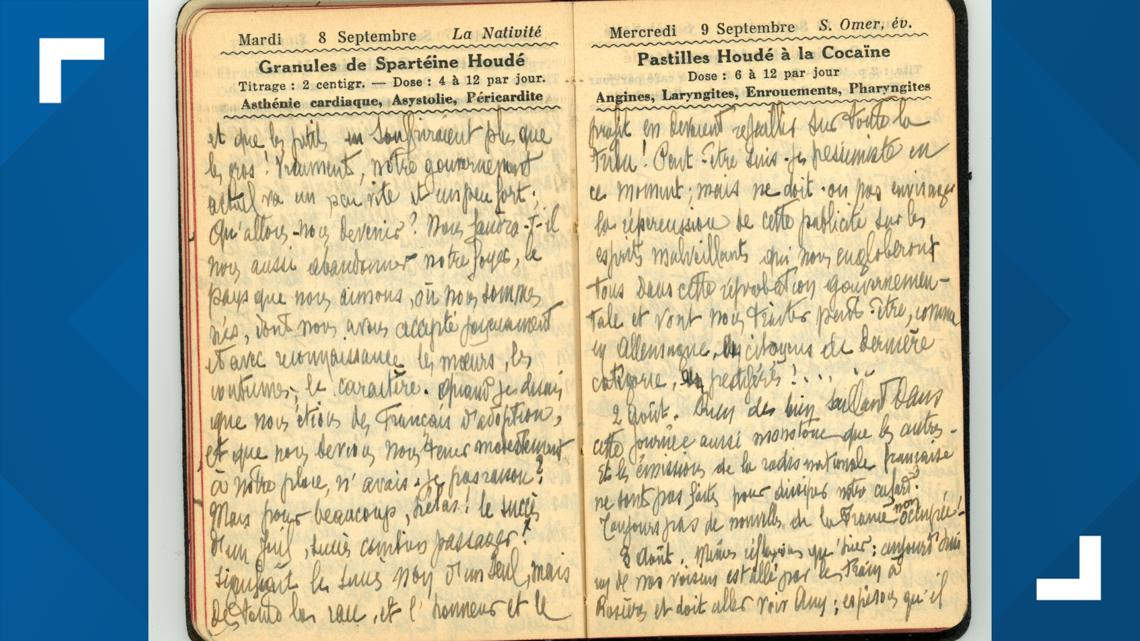 Mardi 8 Septembre La Nativité
Granules de Spartéine Houdé
Titrage : 2 centigr. — Dose : 4 à 12 par jour.
Asthénie cardiaque, Asystolie, Péricardite
et que les petits en souffriraient plus que
les gros ! Vraiment, notre gouvernement
actuel va un peu vite et un peu fort ;
Qu'allons-nous devenir ? Nous faudra-t-il
nous aussi abandonner notre foyer, le
pays que nous aimons, où nous sommes
nés, dont nous avons accepté joyeusement
et avec reconnaissance les mœurs, les
coutumes, le caractère. Quand je disais
que nous étions des Français d'adoption,
et que nous devions nous tenir modestement
à notre place, n'avais-je pas raison ?
Mais pour beaucoup, hélas ! le succès
d'un Juif, succès combien passager !
signifiait le succès non d'un seul, mais
de toute la race, et l'honneur et le
Mercredi 9 Septembre S. Omer, év.
Pastilles Houdé à la Cocaïne
Dose : 6 à 12 par jour
Angines, Laryngites, Enrouements, Pharyngites
profit en devraient rejaillir sur toute la
tribu ! Peut-être suis-je pessimiste en
ce moment, mais ne doit-on pas envisager
la répercussion de cette publicité sur les
esprits malveillants qui nous engloberont
tous dans cette réprobation gouvernemen-
tale et vont nous traiter peut-être, comme
en Allemagne, en citoyens de dernière
catégorie, en pestiférés ! ...
2 août. Rien de bien saillant dans
cette journée aussi monotone que les autres.
Et les émissions de la radio nationale française
ne sont pas faites pour dissiper notre cafard.
Toujours pas de nouvelles de la France non occupée !
3 août. Mêmes réflexions qu'hier ; aujourd'hui
un de nos voisins est allé par le train à
Rosières et doit aller voir Any ; espérons qu'il